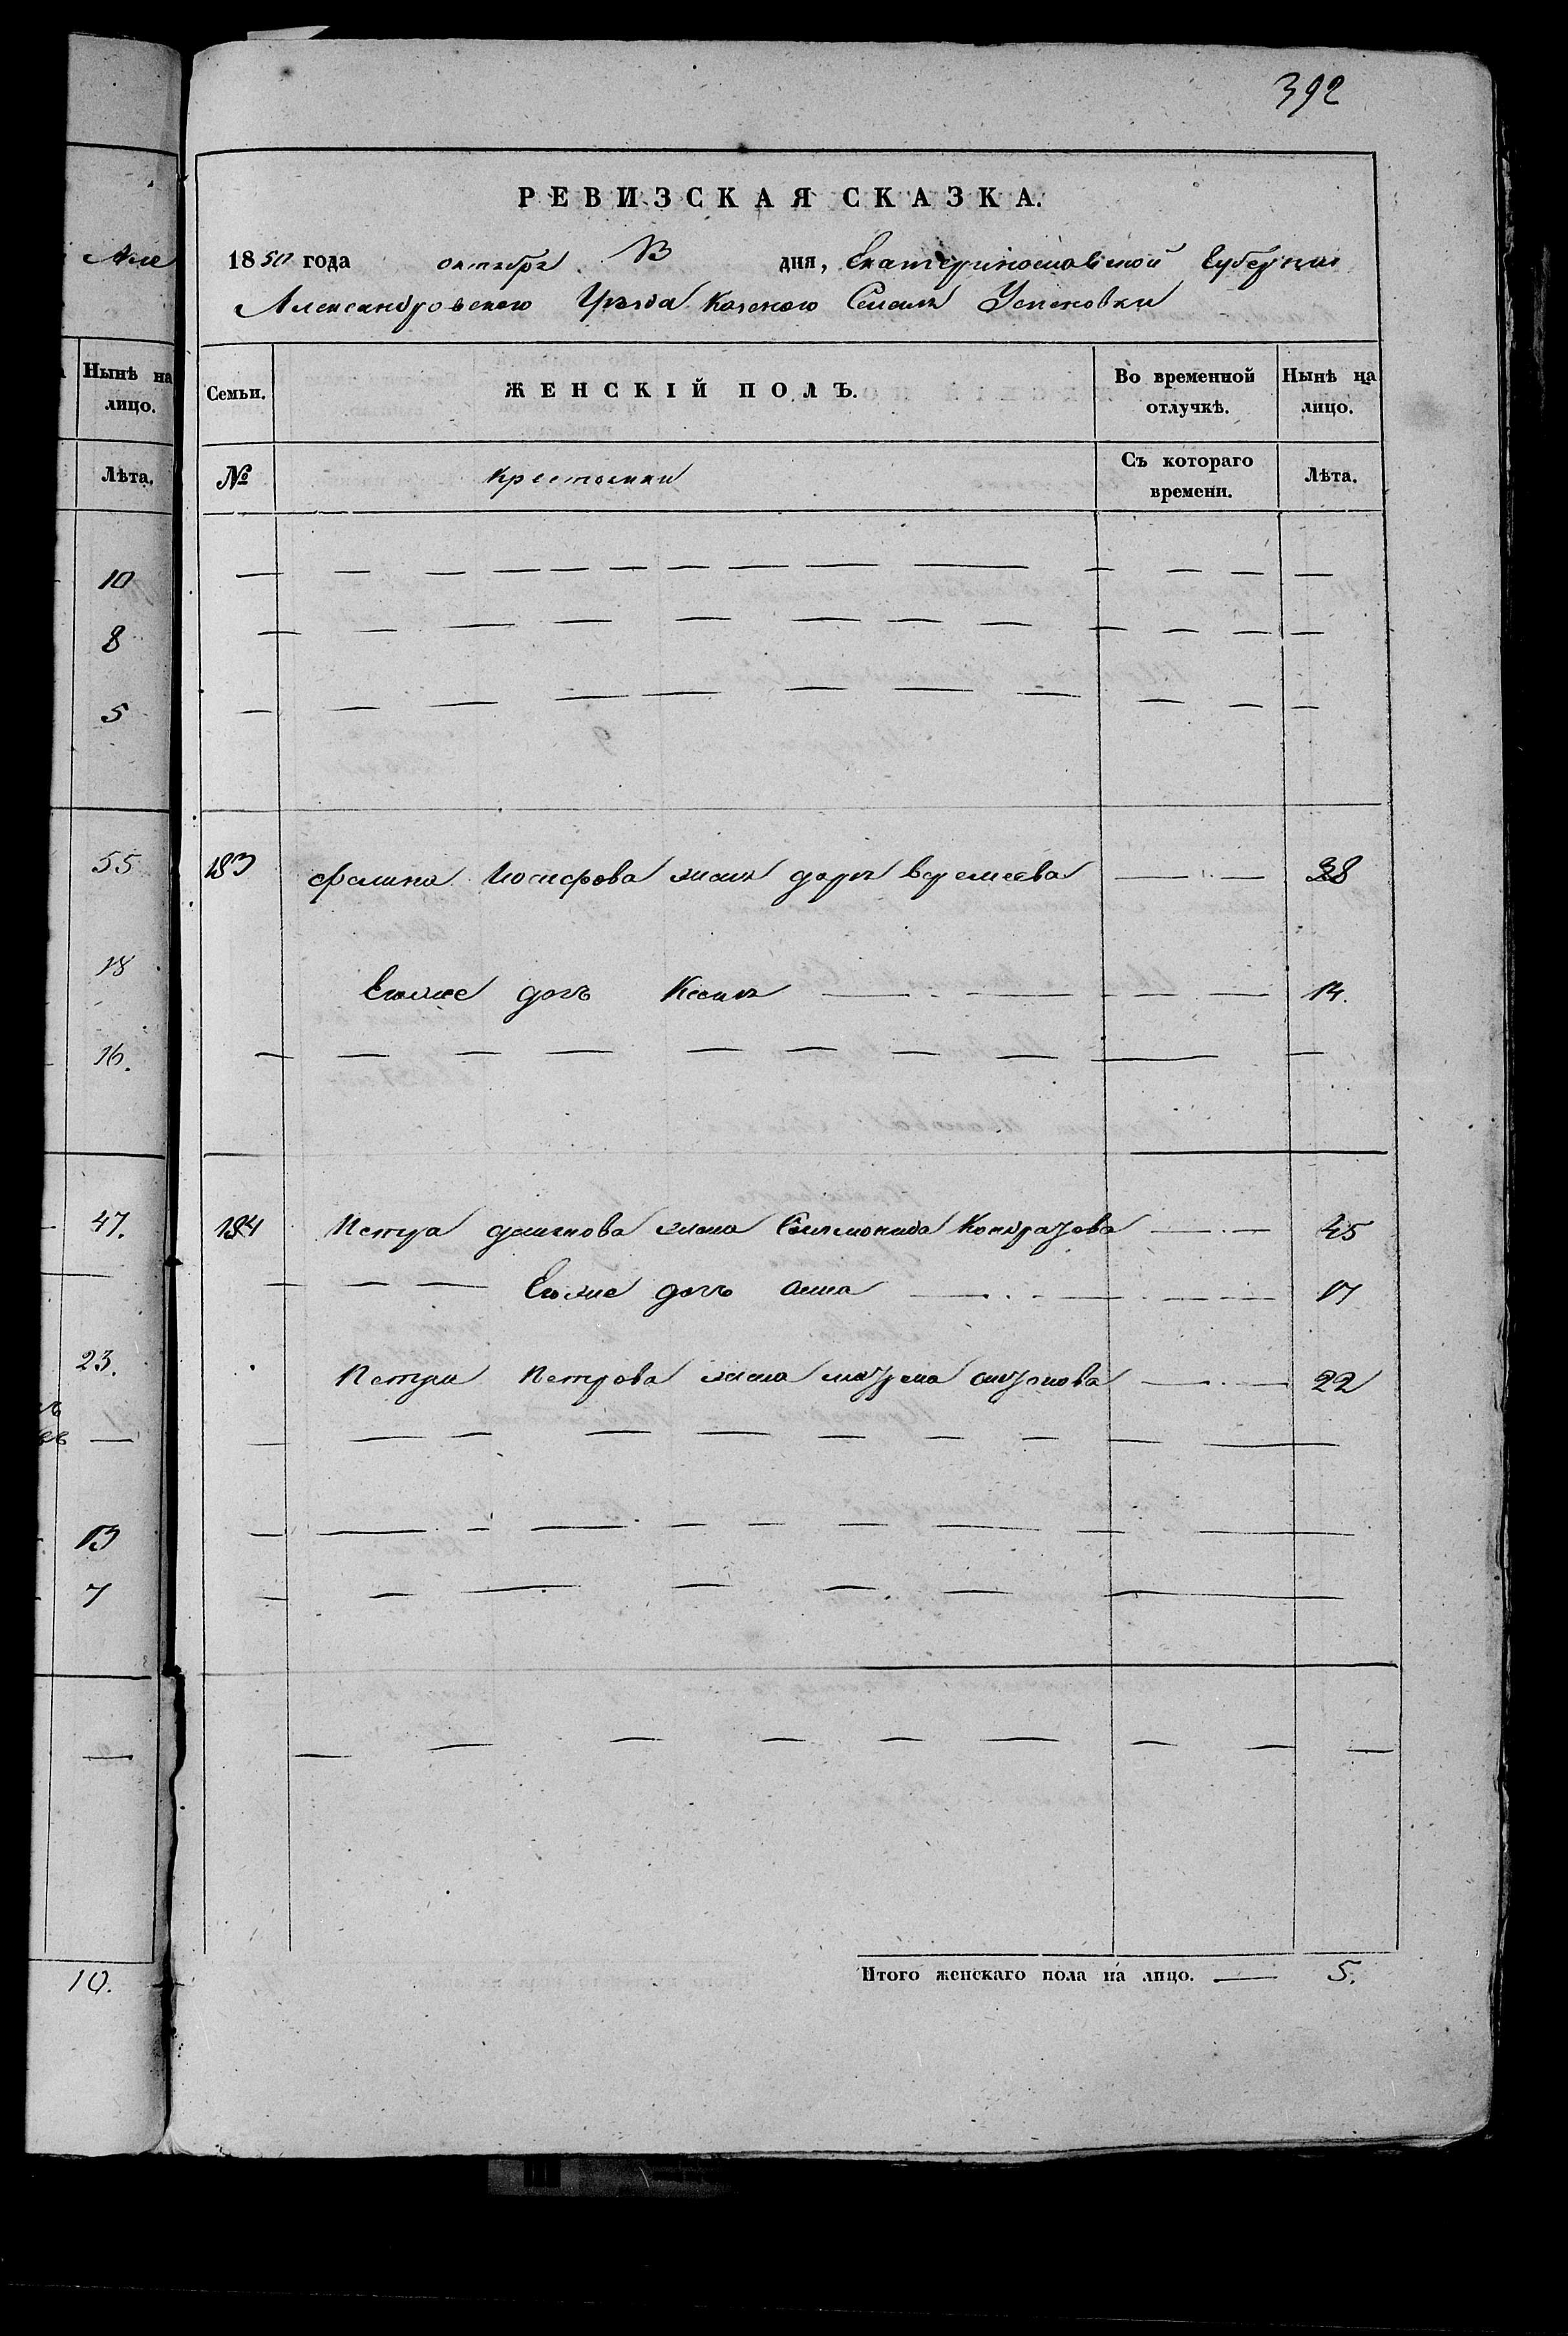 392
РЕВИЗСКАЯ СКАЗКА.
1850 года октября 13 дня, Екатеринославской Губернии
Александровского Уезда Казеного Селения Успеновки
Але
Нынѣ на лицо.
Лѣта.
10
8
5
55
18
16.
47.
23.
13
7
10.
Семьи. ЖЕНСКІЙ ПОЛЪ. Во временной отлучкѣ. Нынѣ на лицо.
№ крестьянки Съ котораго времени. Лѣта.
183 Фомина Иосифова жена дарья веремеева 38
Егоже дочь Ксения 14.
184 Петра жена Кондратова 45
Егоже дочь анна 17
Петра Петрова жена 22
Итого женскаго пола на лицо. 5.